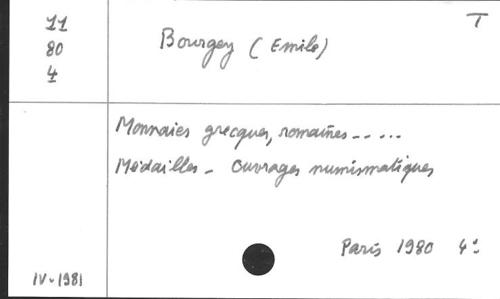 T
11
80
4
Bourgey (Emile)
Monnaies grecques, romaines --...
Médailles - Ouvrages numismatiques
Paris 1980 4°
IV-1981